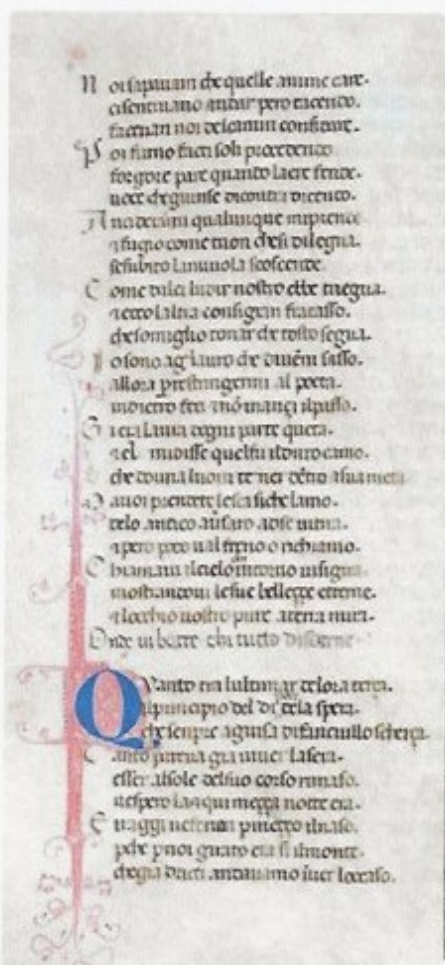 Noi sapauam che quelle anime care.
cisentiuano andar pero tacendo.
facean noi delcamin confidare.
Poi fumo facti soli procedendo
folgore parue quando laere fende.
uoce chegiunse dicontra dicendo.
Ancidrami qualunque mprende
⁊ fugio come tuon chesi dilegua.
sesubito lanuuola scoscende.
Come dalei ludir nostro ebbe triegua.
⁊ ecco laltra consigran fracasso.
chesomiglio tonar che tosto segua.
Io sono aglauro che diuēni sasso.
allora prestringermi al poeta.
indietro feci ⁊ nō inançi ilpasso.
Gia era laura dogni parte queta.
⁊ el misse quelfu ilduro camo.
che douria luom tener dētro asua meta
Ma uoi prendete lesca siche lamo.
delo antico auersaro ase uitira.
⁊ pero poco ual freno o richiamo.
Chiamaui ilcielo intorno uisigira.
mostrandoui lesue belleççe eterne.
⁊ locchio uostro pure aterra mira.
Onde ui batte chi tutto discerne.
Quanto tra lultimar delora terça.
⁊ lprincipio del di dela spera.
che senpre aguisa difanciullo scherça.
Tanto pareua gia inuer lasera.
esser alsole delsuo corso rimaso.
uespero la ⁊ qui meçça notte era.
E iraggi neferian pmeçço ilnaso.
pche pnoi girato era si ilmonte.
chegia dritti andauamo iuer loccaso.